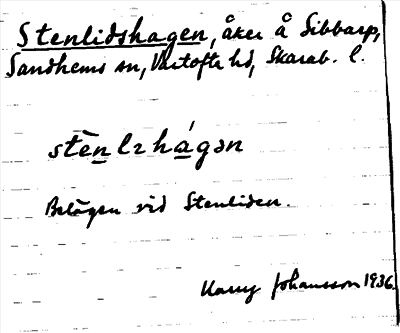 Stenlidshagen, åker å Sibbarp,
Sandhems sn, Vartofta hd, Skarab. l.
stènlɩhágən
Belägen vid Stenliden.
Harry Johansson 1936.